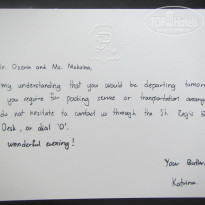 Mr. Ozerin and Ms. Makolma,
my understanding that you would be departing tomorr
you require the packing service or transportation arrang
do not hesitate to contact us through the St. Regis B
Desk, or dial '0'.
wonderful evening!
Your Butler,
Katrina